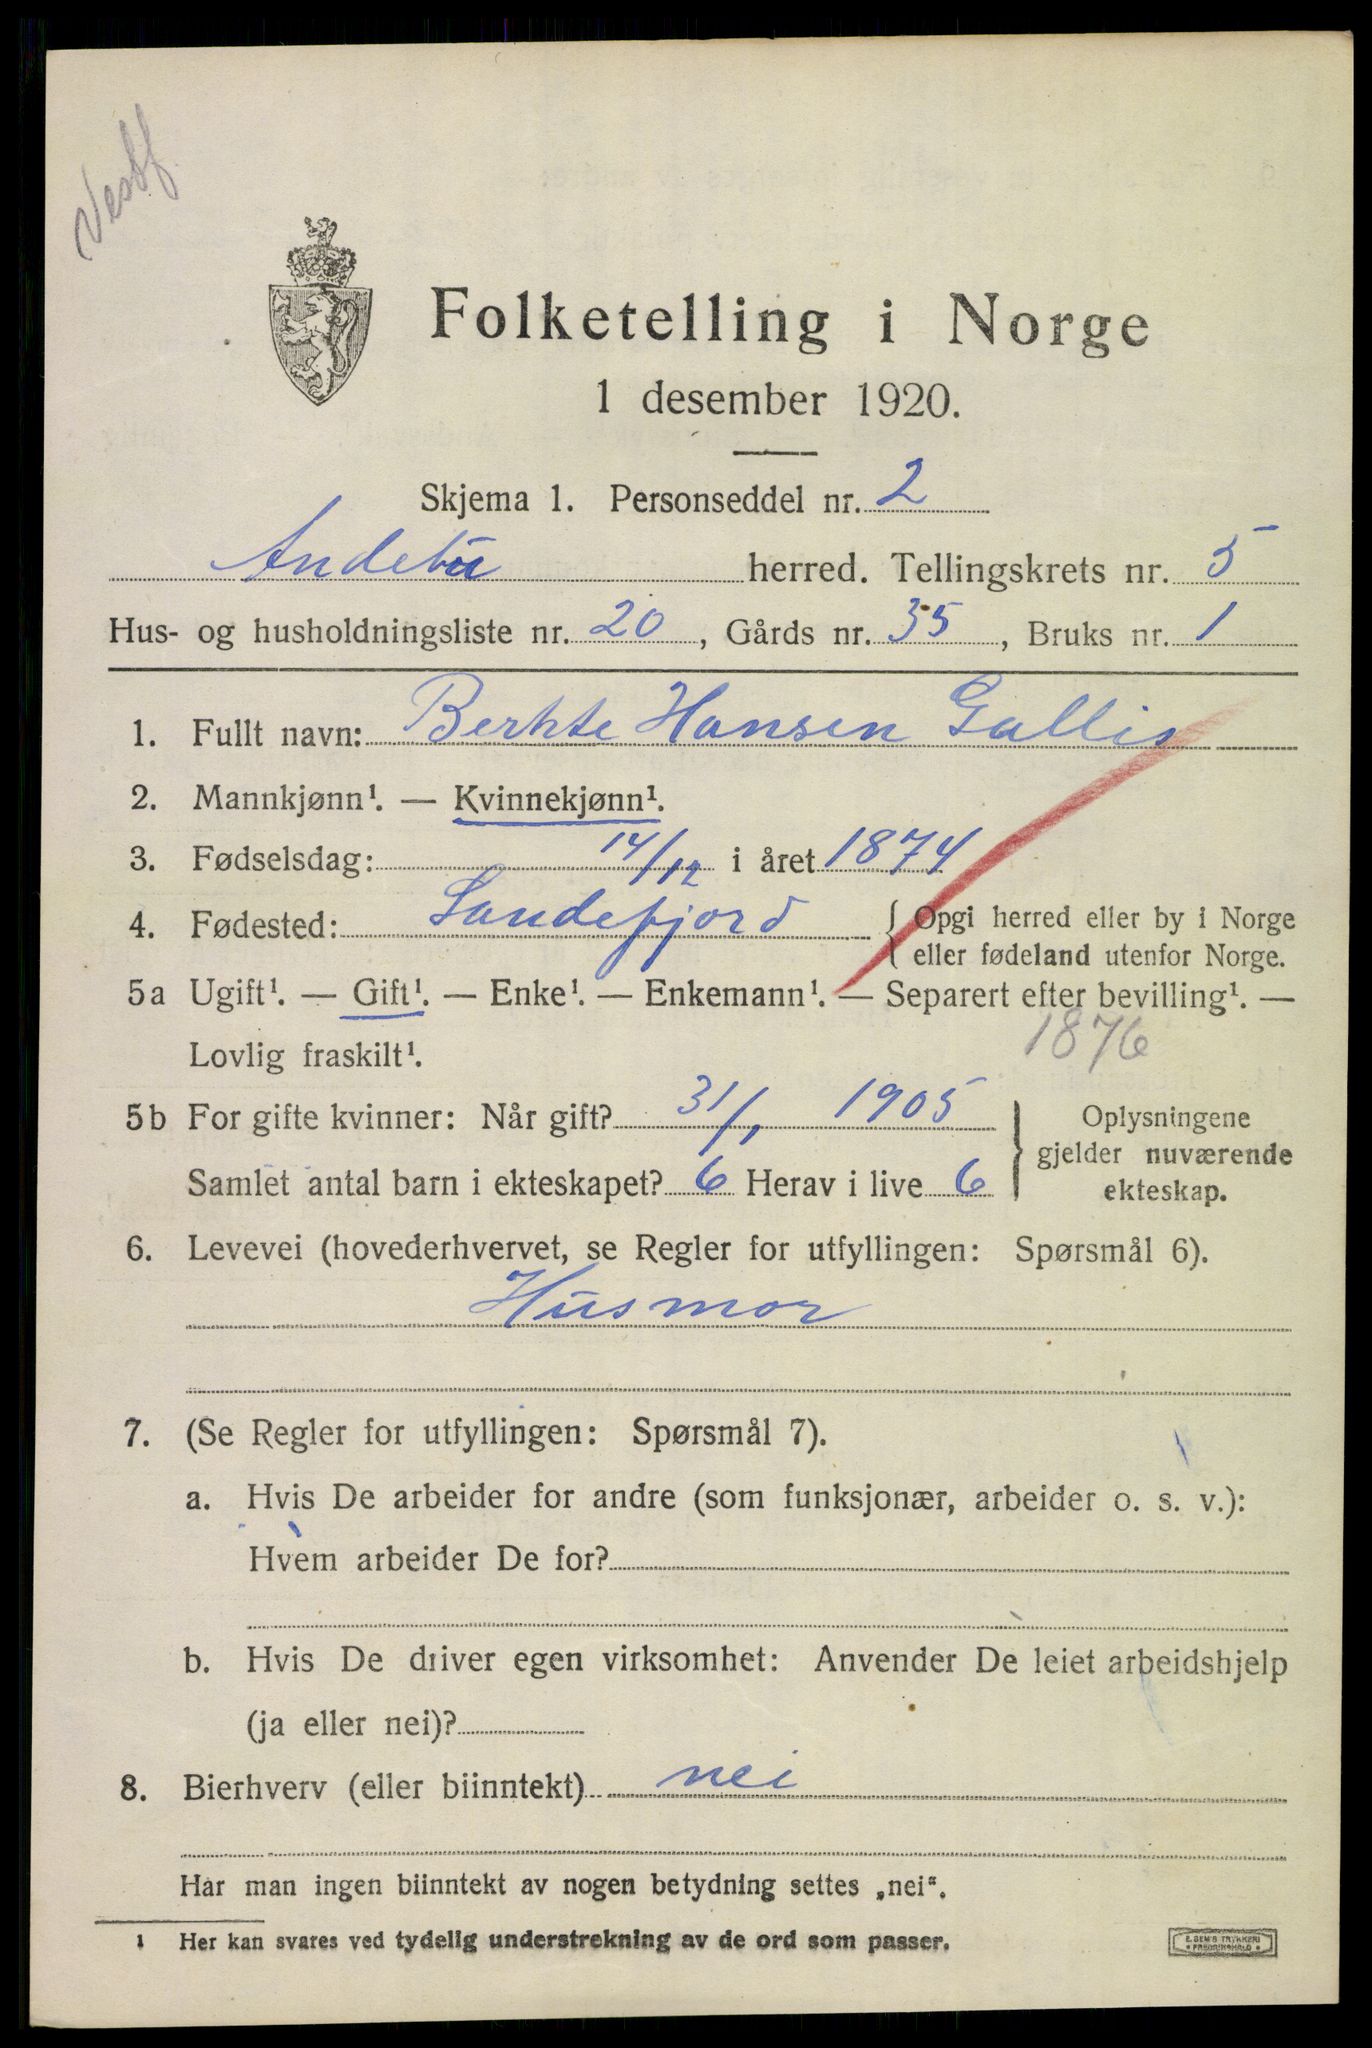 Vestf.
Folketelling i Norge
1 desember 1920.
Skjema 1. Personseddel nr. 2
Andebu herred. Tellingskrets nr. 5
Hus- og husholdningsliste nr. 20, Gårds nr. 35, Bruks nr. 1
1. Fullt navn: Berhte Hansen Gallis
2. Mannkjønn¹. — Kvinnekjønn¹.
3. Fødselsdag: 14/12 i året 1874
4. Fødested: Sandefjord { Opgi herred eller by i Norge
eller fødeland utenfor Norge.
5a Ugift¹. — Gift¹. — Enke¹. — Enkemann¹. — Separert efter bevilling¹. —
Lovlig fraskilt¹. 1876
5b For gifte kvinner: Når gift? 31/1 1905 } Oplysningene
gjelder nuværende
Samlet antal barn i ekteskapet? 6 Herav i live 6 ekteskap.
6. Levevei (hovederhvervet, se Regler for utfyllingen: Spørsmål 6).
Husmor
7. (Se Regler for utfyllingen: Spørsmål 7).
a. Hvis De arbeider for andre (som funksjonær, arbeider o. s. v.):
Hvem arbeider De for?
b. Hvis De driver egen virksomhet: Anvender De leiet arbeidshjelp
(ja eller nei)?
8. Bierhverv (eller biinntekt) nei
Har man ingen biinntekt av nogen betydning settes „nei“.
¹ Her kan svares ved tydelig understrekning av de ord som passer.
E. SEM'S TRYKKERI
FREDRIKSHALD